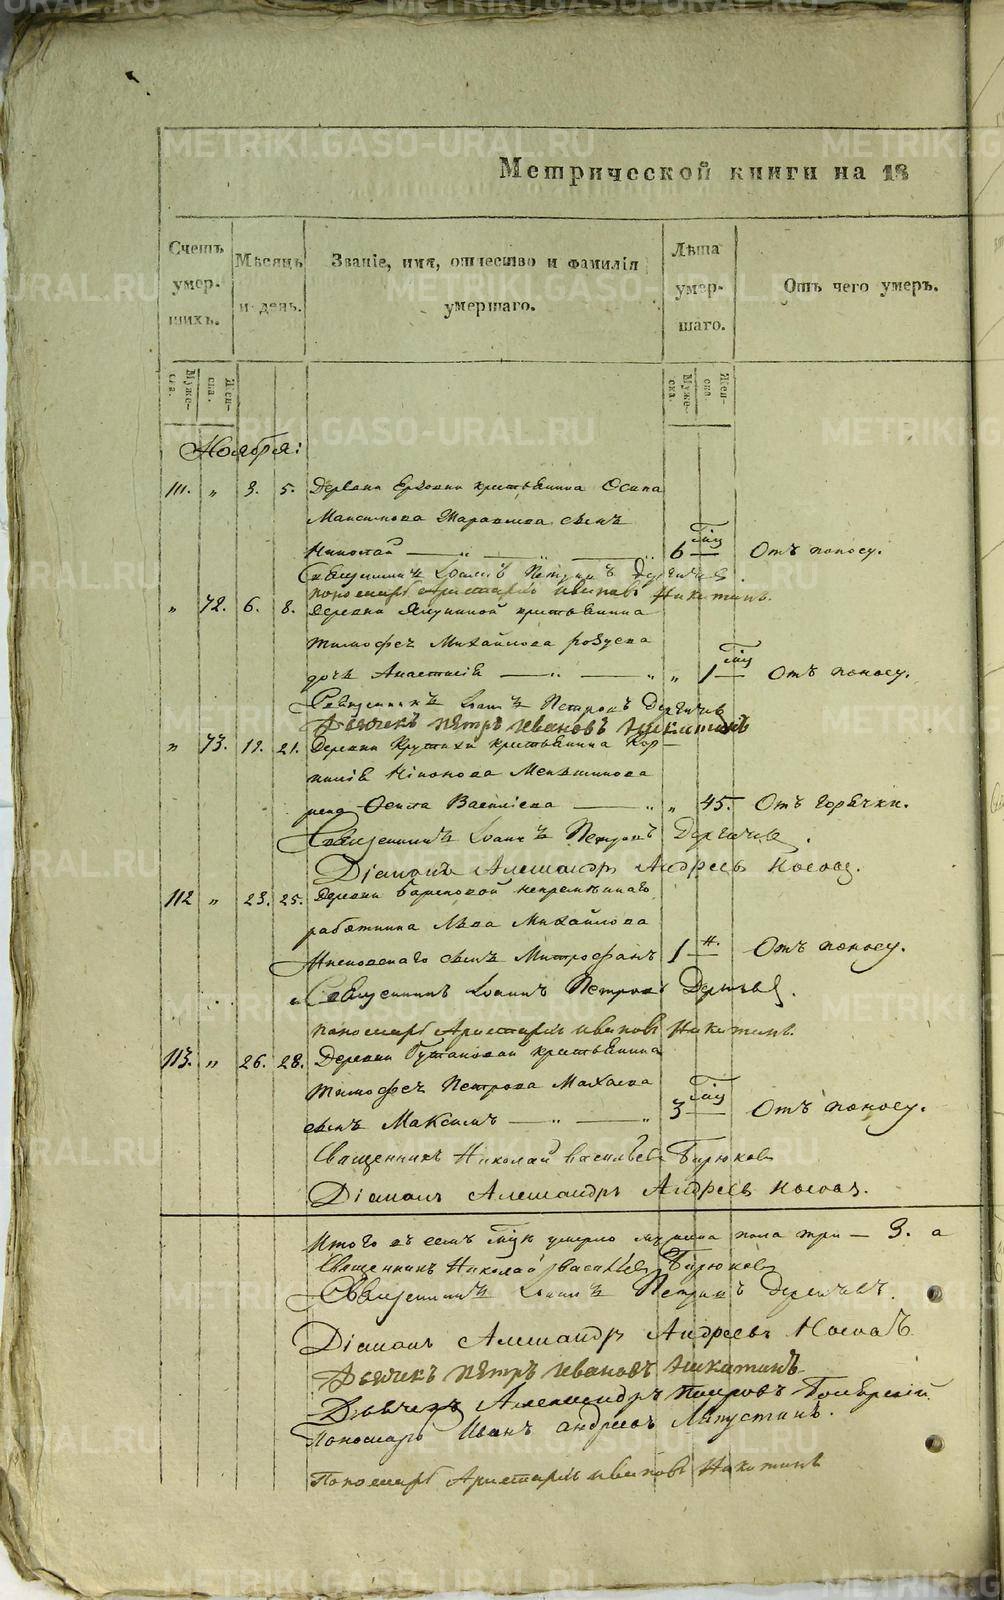 Метрической книги на 18
Счетъ умер-шихъ.
Мѣсяцъ и день.
Званіе, имя, отчество и фамилія умершаго.
Лѣта умер-шаго.
Отъ чего умеръ.
Муже-ска.
Жен-ска.
Муже-ска.
Жен-ска.
Ноября:
111. „ 3. 5. Деревни крестьянина Осипа
Максимова сынъ
Николай — „ — „ — „ 6 мѣц Отъ поносу.
Священникъ Іоаннъ Петровъ
Пономарь Аристархъ Ивановъ Никитинъ.
„ 72. 6. 8. Деревни крестьянина
Тимофея Михайлова
дочь Анастасія — „ — „ „ 1 мѣц Отъ поносу.
Священникъ Іоаннъ Петровъ
Дьячекъ Петръ Ивановъ Никитинъ
„ 73. 19. 21. Деревни Крутихи крестьянина Кор-
нилія Никонова Меньшикова
жена Васильева — „ „ 45. Отъ горячки.
Священникъ Іоаннъ Петровъ
Діаконъ Александръ Андреевъ Носовъ.
112 „ 23. 25. Деревни непремѣннаго
работника Льва Михайлова
сынъ Митрофанъ 1 н. Отъ поносу.
Священникъ Іоаннъ Петровъ
Пономарь Аристархъ Ивановъ Никитинъ.
113. „ 26. 28. Деревни крестьянина
Тимофея Петрова Махаева
сынъ Максимъ — „ — „ 3 мѣц Отъ поносу.
Священникъ Николай Васильевъ Бирюковъ
Діаконъ Александръ Андреевъ Носовъ.
Итого въ семъ мѣц умерло мужеска пола три — 3. а
Священникъ Николай Васильевъ Бирюковъ
Священникъ Іоаннъ Петровъ
Діаконъ Александръ Андреевъ Носовъ
Дьячекъ Петръ Ивановъ Никитинъ
Дьячекъ Александръ Петровъ
Пономарь Иванъ Андреевъ Лапустинъ.
Пономарь Аристархъ Ивановъ Никитинъ
METRIKI.GASO-URAL.RU